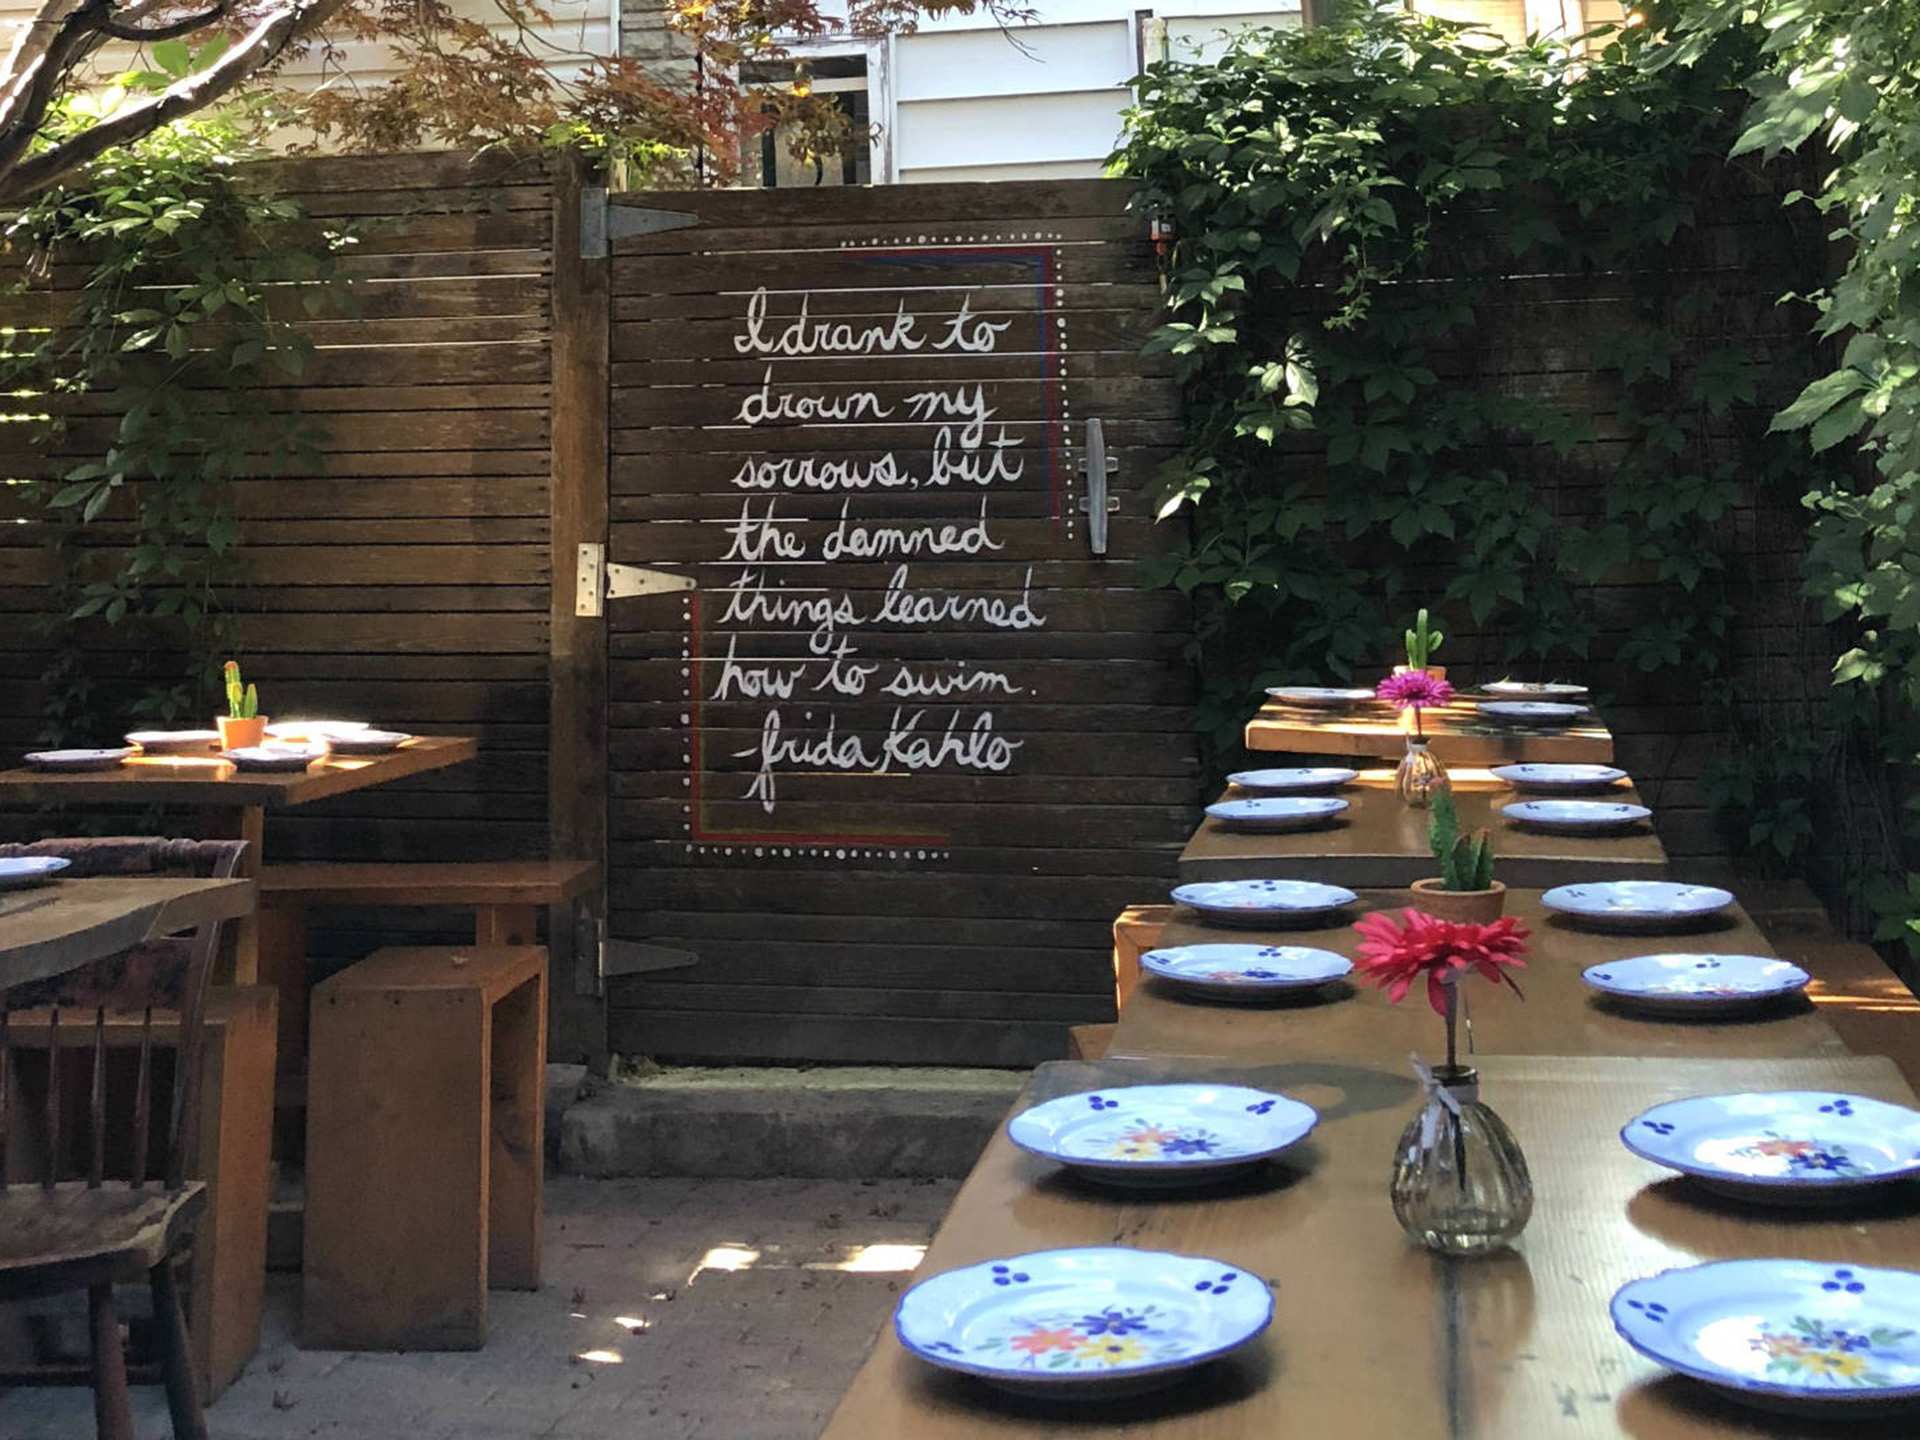 I drank to
drown my
sorrows, but
the damned
things learned
how to swim.
-frida Kahlo